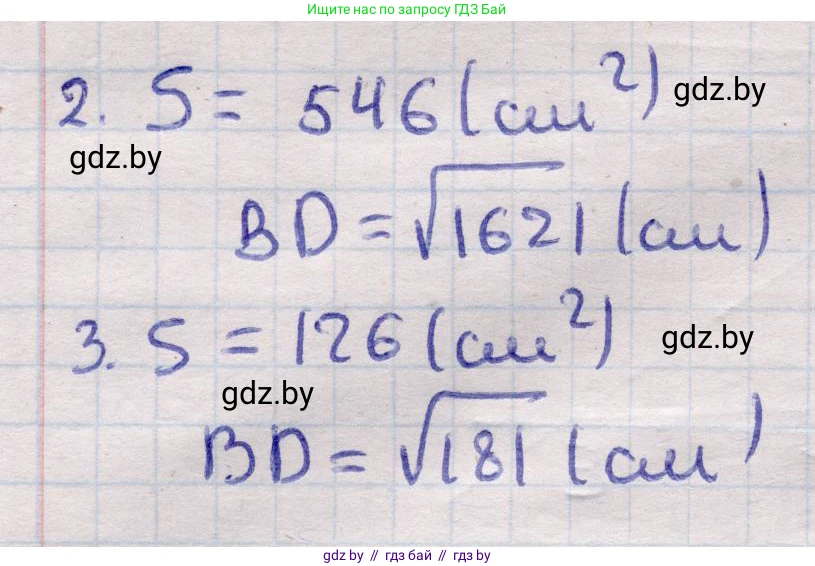 Ищите нас по запросу ГДЗ Бай
2. S = 546 (см²) gdz.by
gdz.by
BD = √1621 (см)
3. S = 126 (см²) gdz.by
gdz.by
BD = √181 (см)
gdz by // гдз бай // гдз by